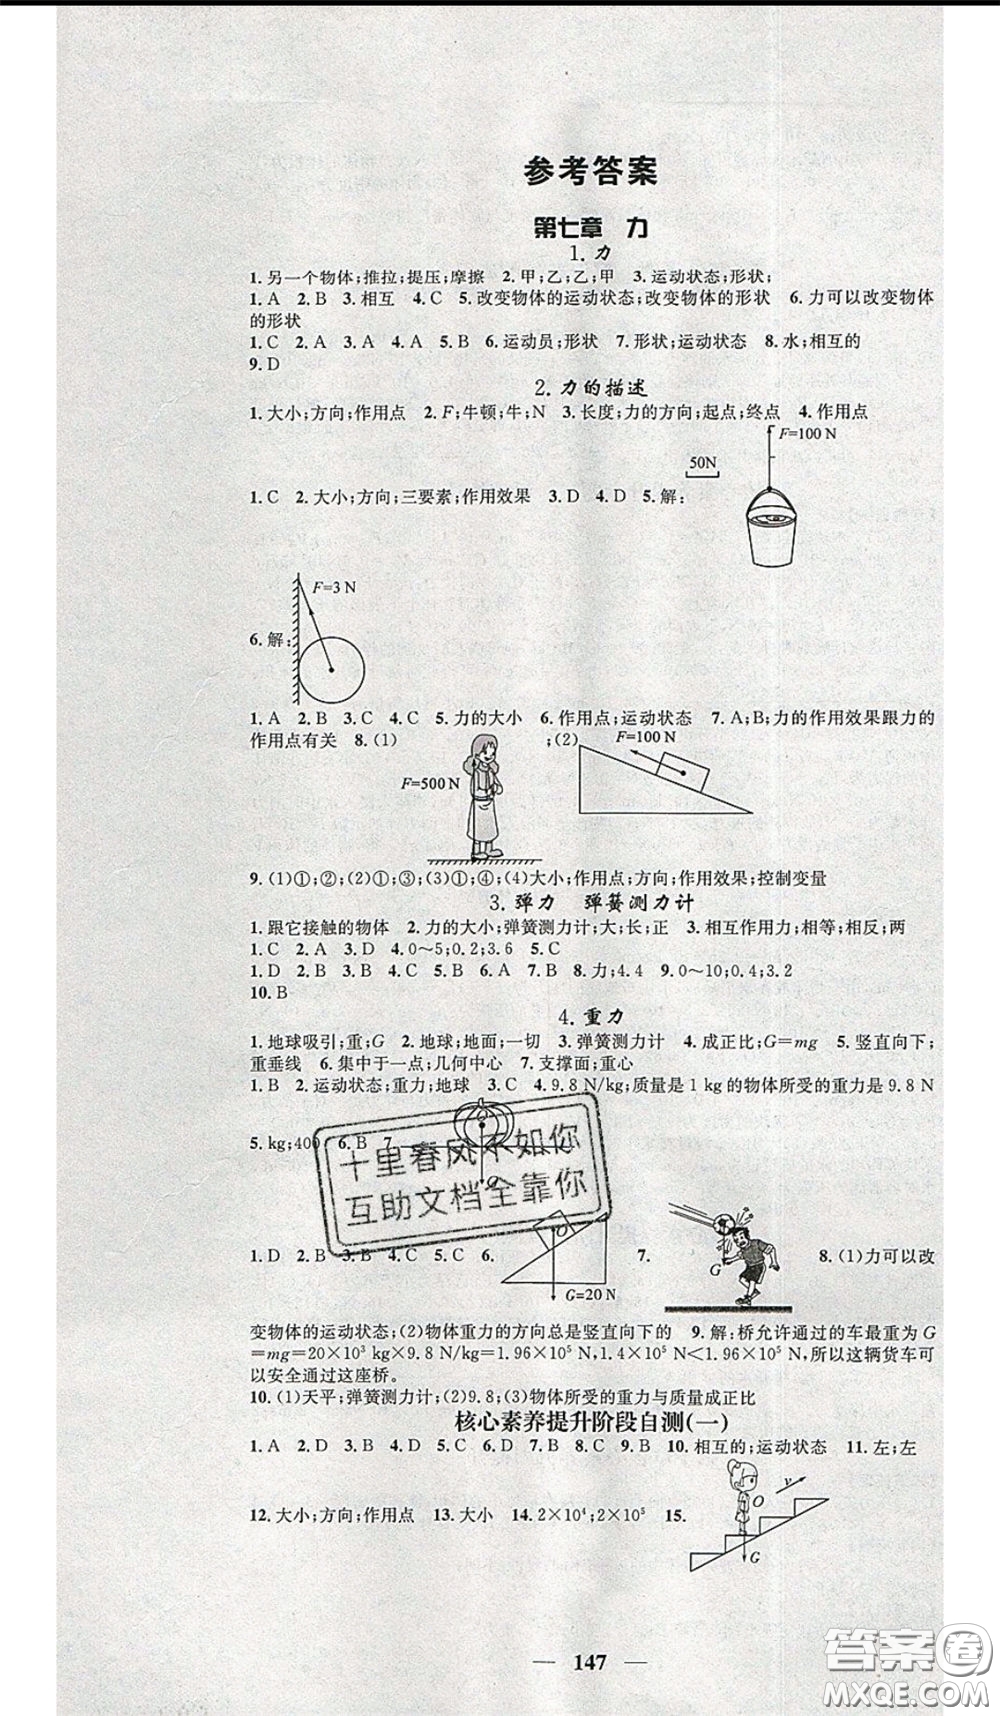 参考答案
第七章 力
1.力
1.另一个物体;推拉;提压;摩擦 2.甲;乙;乙;甲 3.运动状态;形状;
1.A 2.B 3.相互 4.C 5.改变物体的运动状态;改变物体的形状 6.力可以改变物体
的形状
1.C 2.A 3.A 4.A 5.B 6.运动员;形状 7.形状;运动状态 8.水;相互的
9.D
2.力的描述
1.大小;方向;作用点 2.F;牛顿;牛;N 3.长度;力的方向;起点;终点 4.作用点
F=100 N
50N
1.C 2.大小;方向;三要素;作用效果 3.D 4.D 5.解:
F=3 N
6.解:
1.A 2.B 3.C 4.C 5.力的大小 6.作用点;运动状态 7.A;B;力的作用效果跟力的
作用点有关 8.(1) ;(2)
F=100 N
F=500 N
9.(1)①;②;(2)①;③;(3)①;④;(4)大小;作用点;方向;作用效果;控制变量
3.弹力 弹簧测力计
1.跟它接触的物体 2.力的大小;弹簧测力计;大;长;正 3.相互作用力;相等;相反;两
1.C 2.A 3.D 4.0～5;0.2;3.6 5.C
1.D 2.B 3.C 4.D 5.B 6.A 7.B 8.力;4.4 9.0～10;0.4;3.2
10.B
4.重力
1.地球吸引;重;G 2.地球;地面;一切 3.弹簧测力计 4.成正比;G=mg 5.竖直向下;
重垂线 6.集中于一点;几何中心 7.支撑面;重心
1.B 2.运动状态;重力;地球 3.C 4.9.8 N/kg;质量是1 kg的物体所受的重力是9.8 N
5.kg;400 6.B 7.
G
十里春风不如你
互助文档全靠你
1.D 2.B 3.B 4.C 5.C 6. 7. 8.(1)力可以改
O
G
G=20 N
变物体的运动状态;(2)物体重力的方向总是竖直向下的 9.解:桥允许通过的车最重为G
=mg=20×10³ kg×9.8 N/kg=1.96×10⁵ N,1.4×10⁵ N<1.96×10⁵ N,所以这辆货车可
以安全通过这座桥。
10.(1)天平;弹簧测力计;(2)9.8;(3)物体所受的重力与质量成正比
核心素养提升阶段自测(一)
1.A 2.D 3.A 4.B 5.C 6.D 7.C 8.B 9.B 10.相互的;运动状态 11.左;左
v
O
12.大小;方向;作用点 13.大小 14.2×10⁴;2×10⁵ 15.
G
— 147 —
答案卷
MXQE.COM